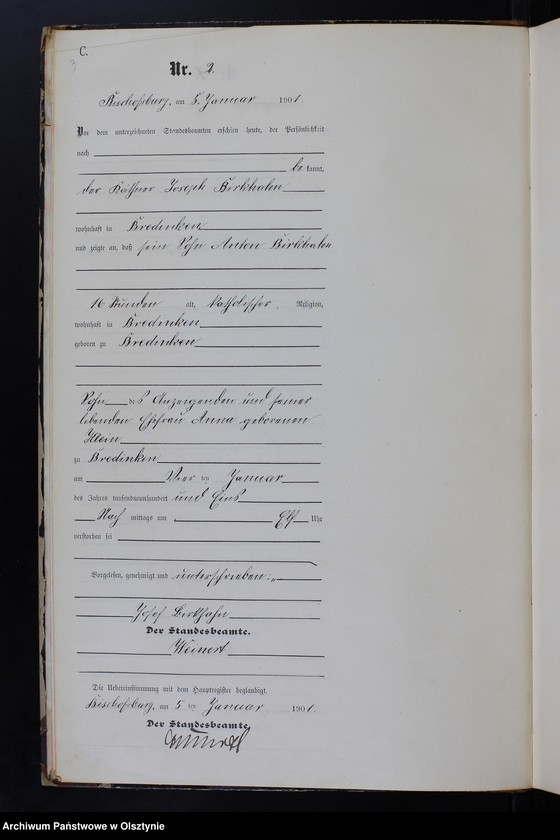 C.
Nr. 2.
Bischofsburg, am 5. Januar 1901.
Vor dem unterzeichneten Standesbeamten erschien heute, der Persönlichkeit
nach
be kannt,
der Käthner Joseph Birkhahn
wohnhaft in Bredinken
und zeigte an, daß sein Sohn Anton Birkhahn
16 Stunden alt, katholischer Religion,
wohnhaft in Bredinken
geboren zu Bredinken
Sohn des Anzeigenden und seiner
lebenden Ehefrau Anna geborenen
Klein
zu Bredinken
am Vier ten Januar
des Jahres tausendneunhundert und Eins
Nach mittags um Elf Uhr
verstorben sei
Vorgelesen, genehmigt und unterschrieben:
Josef Birkhahn
Der Standesbeamte.
Weinert
Die Uebereinstimmung mit dem Hauptregister beglaubigt.
Bischofsburg, am 5 ten Januar 1901.
Der Standesbeamte.
Archiwum Państwowe w Olsztynie